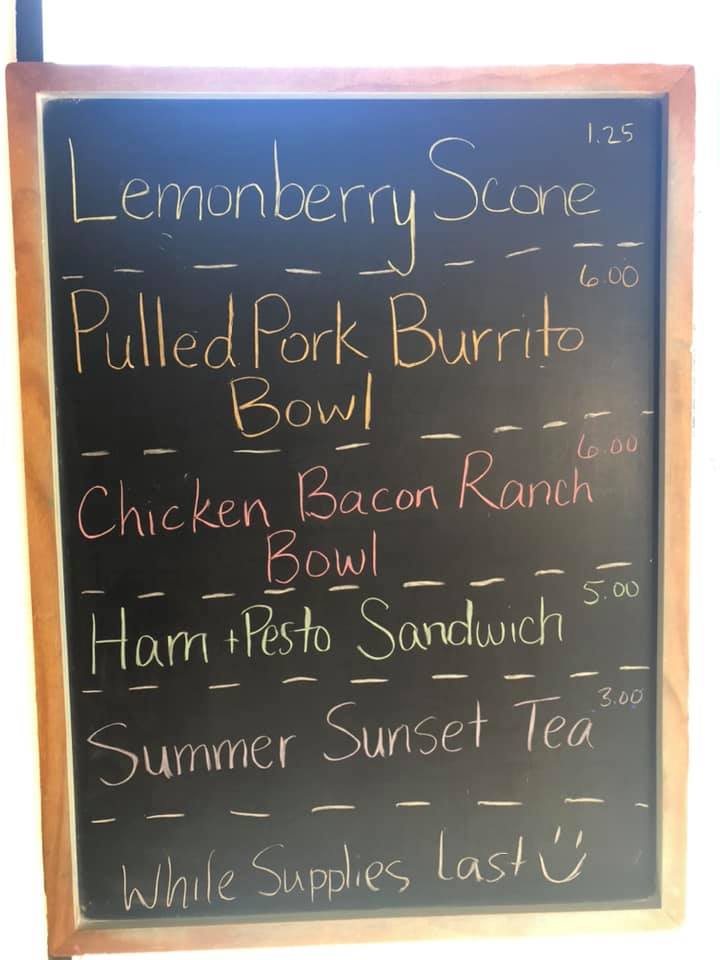 1.25
Lemonberry Scone
6.00
Pulled Pork Burrito
Bowl
6.00
Chicken Bacon Ranch
Bowl
5.00
Ham + Pesto Sandwich
3.00
Summer Sunset Tea
While Supplies Last